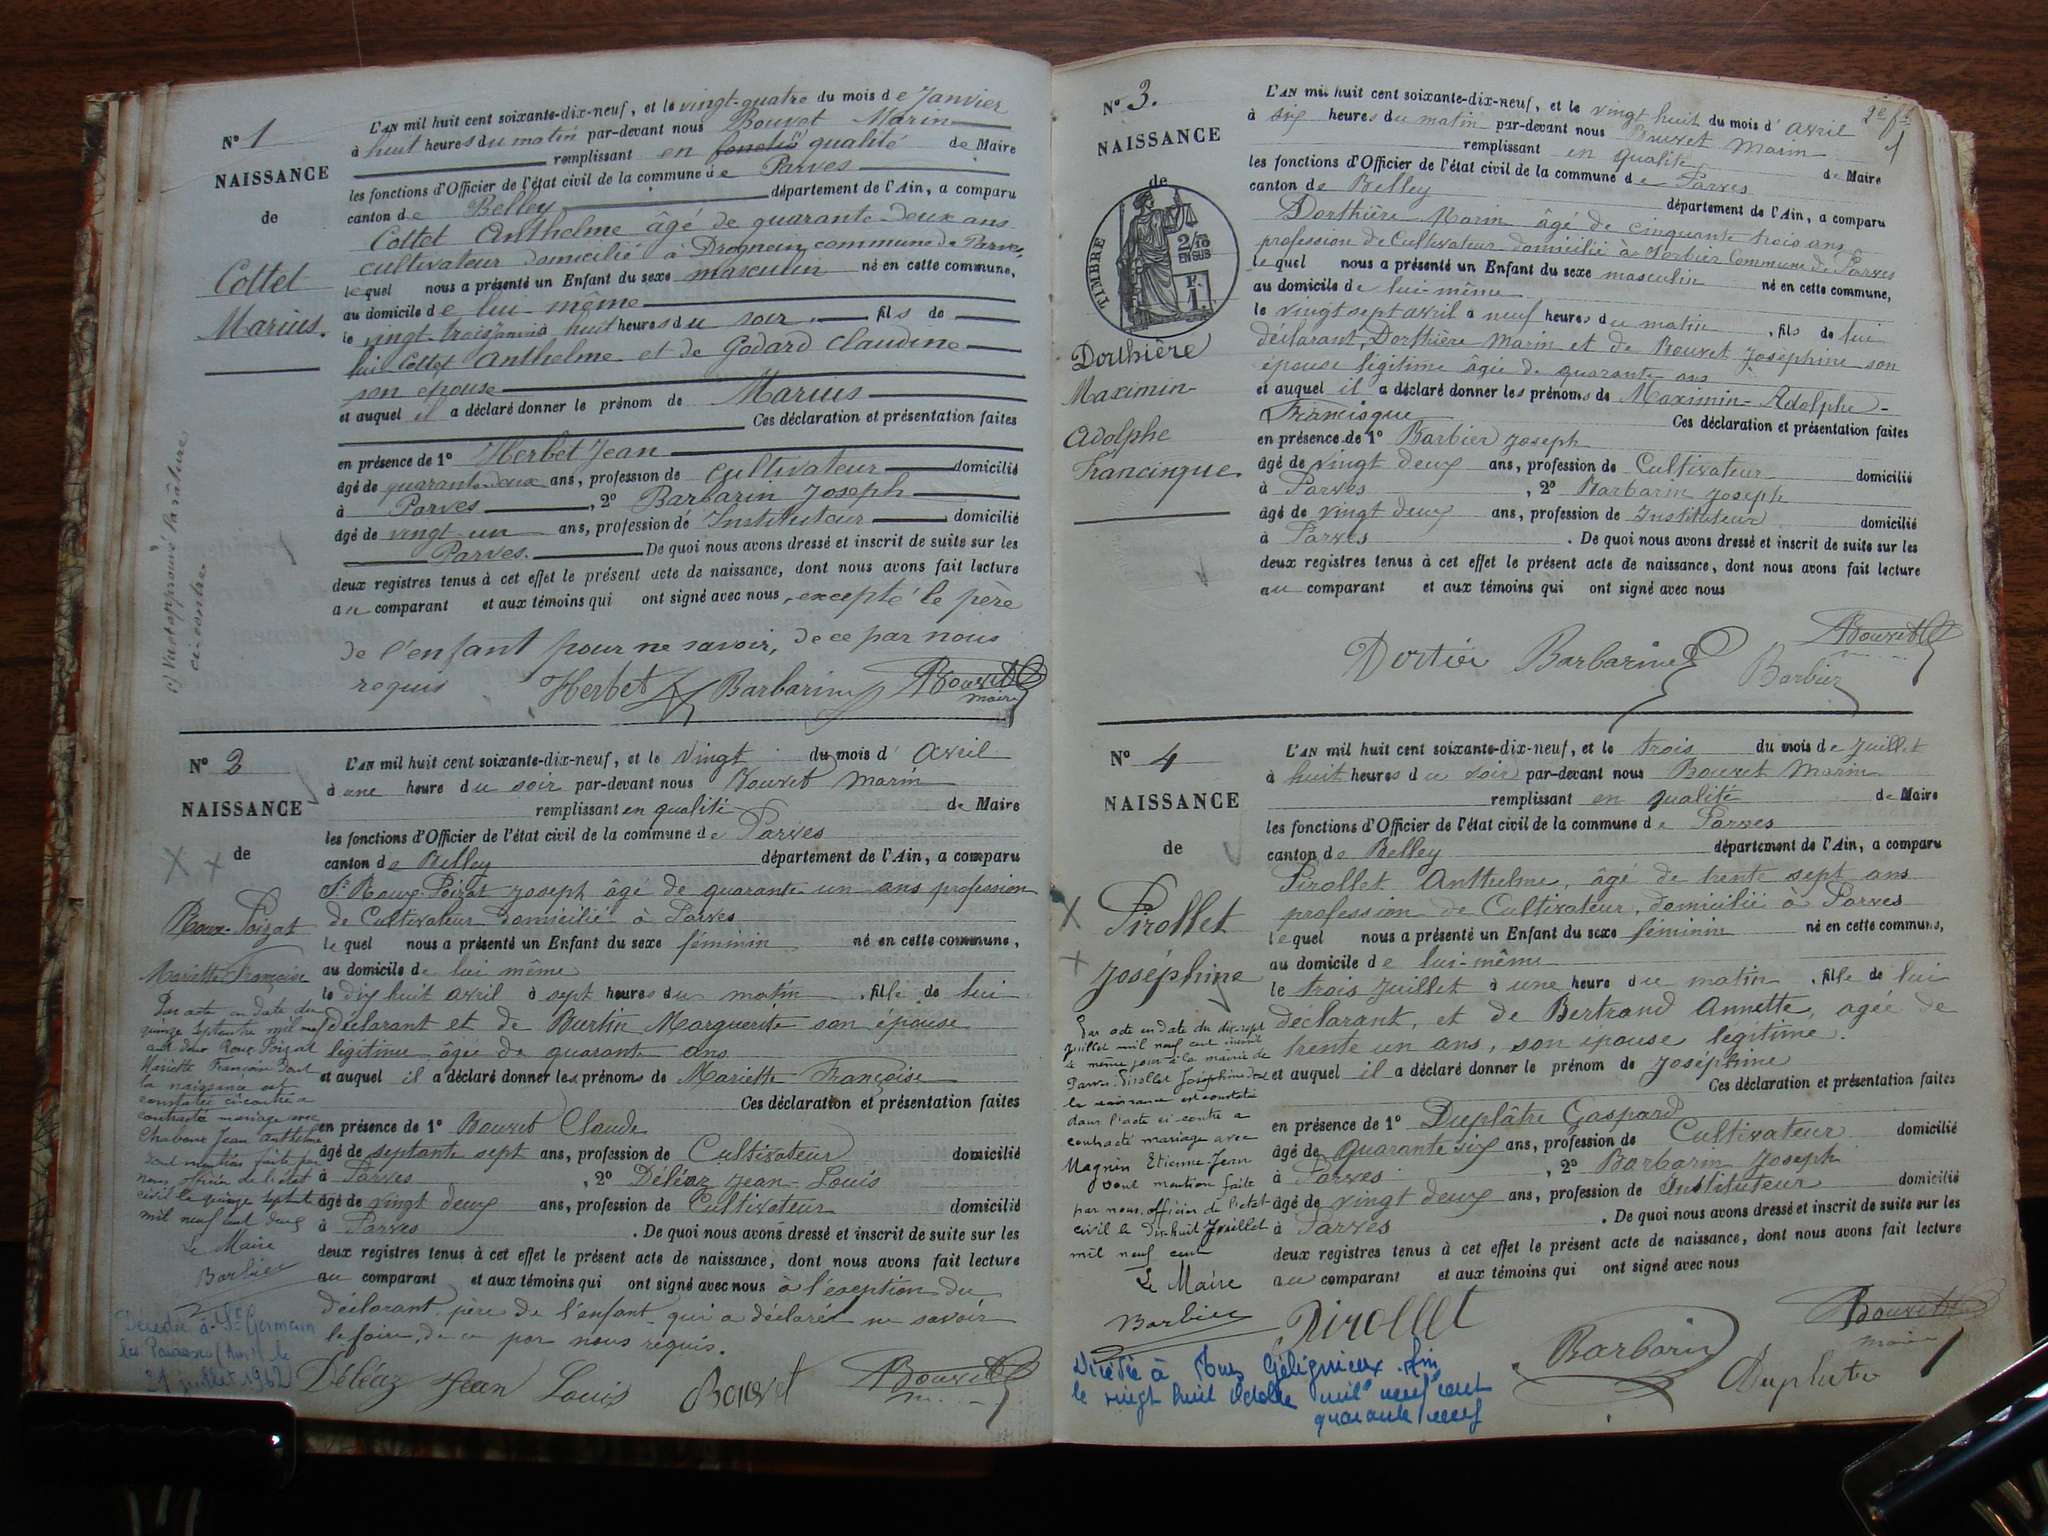 N° 1
NAISSANCE
de
Cottet
Marius.
L'AN mil huit cent soixante-dix-neuf, et le vingt-quatre du mois de Janvier
à huit heures du matin par-devant nous Bouvet Marin
remplissant en qualité de Maire
les fonctions d'Officier de l'état civil de la commune de Parves
canton de Belley département de l'Ain, a comparu
Cottet Anthelme âgé de quarante-deux ans
cultivateur domicilié à commune de Parves,
lequel nous a présenté un Enfant du sexe masculin né en cette commune,
au domicile de lui-même
le vingt-trois janvier à huit heures du soir, fils de
lui Cottet Anthelme et de Godard Claudine
son épouse
et auquel il a déclaré donner le prénom de Marius
Ces déclaration et présentation faites
en présence de 1° Herbet Jean
âgé de quarante-deux ans, profession de Cultivateur domicilié
à Parves, 2° Barbarin Joseph
âgé de vingt-un ans, profession de Instituteur domicilié
Parves. De quoi nous avons dressé et inscrit de suite sur les
deux registres tenus à cet effet le présent acte de naissance, dont nous avons fait lecture
au comparant et aux témoins qui ont signé avec nous, excepté le père
de l'enfant pour ne savoir, de ce par nous
requis
Herbet Barbarin Bouvet
maire
ci-contre
N° 2
NAISSANCE
de
Roux-Poizat
Mariette Françoise
Par acte en date du
quinze Septembre mil neuf
cent deux Roux-Poizat
Mariette Françoise dont
la naissance est
constatée ci-contre a
contracté mariage avec
Jean Anthelme
dont mention faite par
nous, officier de l'état
civil le quinze septembre
mil neuf cent deux
Le Maire
Barbier
Décédée à St Germain
les Paroisses (Ain) le
21 juillet 1962
L'AN mil huit cent soixante-dix-neuf, et le vingt du mois d'avril
à une heure du soir par-devant nous Bouvet Marin
remplissant en qualité de Maire
les fonctions d'Officier de l'état civil de la commune de Parves
canton de Belley département de l'Ain, a comparu
Sr Roux-Poizat Joseph âgé de quarante-un ans profession
de Cultivateur domicilié à Parves
lequel nous a présenté un Enfant du sexe féminin né en cette commune,
au domicile de lui même
le dix huit avril à sept heures du matin, fille de lui
déclarant et de Burtin Marguerite son épouse
légitime, âgée de quarante ans
et auquel il a déclaré donner les prénoms de Mariette Françoise
Ces déclaration et présentation faites
en présence de 1° Bouvet Claude
âgé de septante sept ans, profession de Cultivateur domicilié
à Parves, 2° Déléaz Jean-Louis
âgé de vingt deux ans, profession de Cultivateur domicilié
à Parves. De quoi nous avons dressé et inscrit de suite sur les
deux registres tenus à cet effet le présent acte de naissance, dont nous avons fait lecture
au comparant et aux témoins qui ont signé avec nous à l'exeption du
déclarant, père de l'enfant qui a déclaré ne savoir
le faire, de ce par nous requis.
Déléaz Jean Louis Bouvet Bouvet
N° 3.
NAISSANCE
de
TIMBRE
2/10
EN SUS
Dorthière
Maximin-
Adolphe
Francinque
L'AN mil huit cent soixante-dix-neuf, et le vingt huit du mois d'avril
à six heures du matin par-devant nous Bouvet Marin
remplissant en qualité de Maire
les fonctions d'Officier de l'état civil de la commune de Parves
canton de Belley département de l'Ain, a comparu
Dorthière Marin âgé de cinquante trois ans
profession de Cultivateur domicilié à Sorbier Commune de Parves
lequel nous a présenté un Enfant du sexe masculin né en cette commune,
au domicile de lui-même
le vingt sept avril à neuf heures du matin, fils de lui
déclarant, Dorthière Marin et de Bouvet Joséphine son
épouse légitime âgée de quarante ans
et auquel il a déclaré donner les prénoms de Maximin-Adolphe-
Francisque Ces déclaration et présentation faites
en présence de 1° Barbier Joseph
âgé de vingt deux ans, profession de Cultivateur domicilié
à Parves, 2° Barbarin Joseph
âgé de vingt deux ans, profession de Instituteur domicilié
à Parves. De quoi nous avons dressé et inscrit de suite sur les
deux registres tenus à cet effet le présent acte de naissance, dont nous avons fait lecture
au comparant et aux témoins qui ont signé avec nous
Dortier Barbarin Barbier Bouvet
N° 4
NAISSANCE
de
Pirollet
Joséphine
Par acte en date du dix-sept
juillet mil neuf cent inscrit
le même jour à la mairie de
Parves Pirollet Joséphine dont
la naissance est constatée
dans l'acte ci-contre a
contracté mariage avec
Magnin Etienne-Jean
dont mention faite
par nous, officier de l'état
civil le dix-huit Juillet
mil neuf cent
Le Maire
Barbier
L'AN mil huit cent soixante-dix-neuf, et le trois du mois de Juillet
à huit heures du soir par-devant nous Bouvet Marin
remplissant en qualité de Maire
les fonctions d'Officier de l'état civil de la commune de Parves
canton de Belley département de l'Ain, a comparu
Pirollet Anthelme, âgé de trente sept ans
profession de Cultivateur, domicilié à Parves
lequel nous a présenté un Enfant du sexe féminin né en cette commune,
au domicile de lui-même
le trois Juillet à une heure du matin, fille de lui
déclarant, et de Bertrand Annette, agée de
trente un ans, son épouse légitime.
et auquel il a déclaré donner le prénom de Joséphine
Ces déclaration et présentation faites
en présence de 1° Duplâtre Gaspard
âgé de Quarante six ans, profession de Cultivateur domicilié
à Parves, 2° Barbarin Joseph
âgé de vingt deux ans, profession de Instituteur domicilié
à Parves. De quoi nous avons dressé et inscrit de suite sur les
deux registres tenus à cet effet le présent acte de naissance, dont nous avons fait lecture
au comparant et aux témoins qui ont signé avec nous
Pirollet Barbarin Bouvet
maire
Duplatre
Décédée à Gélignieux Ain
le vingt huit Octobre mil neuf cent
quarante neuf